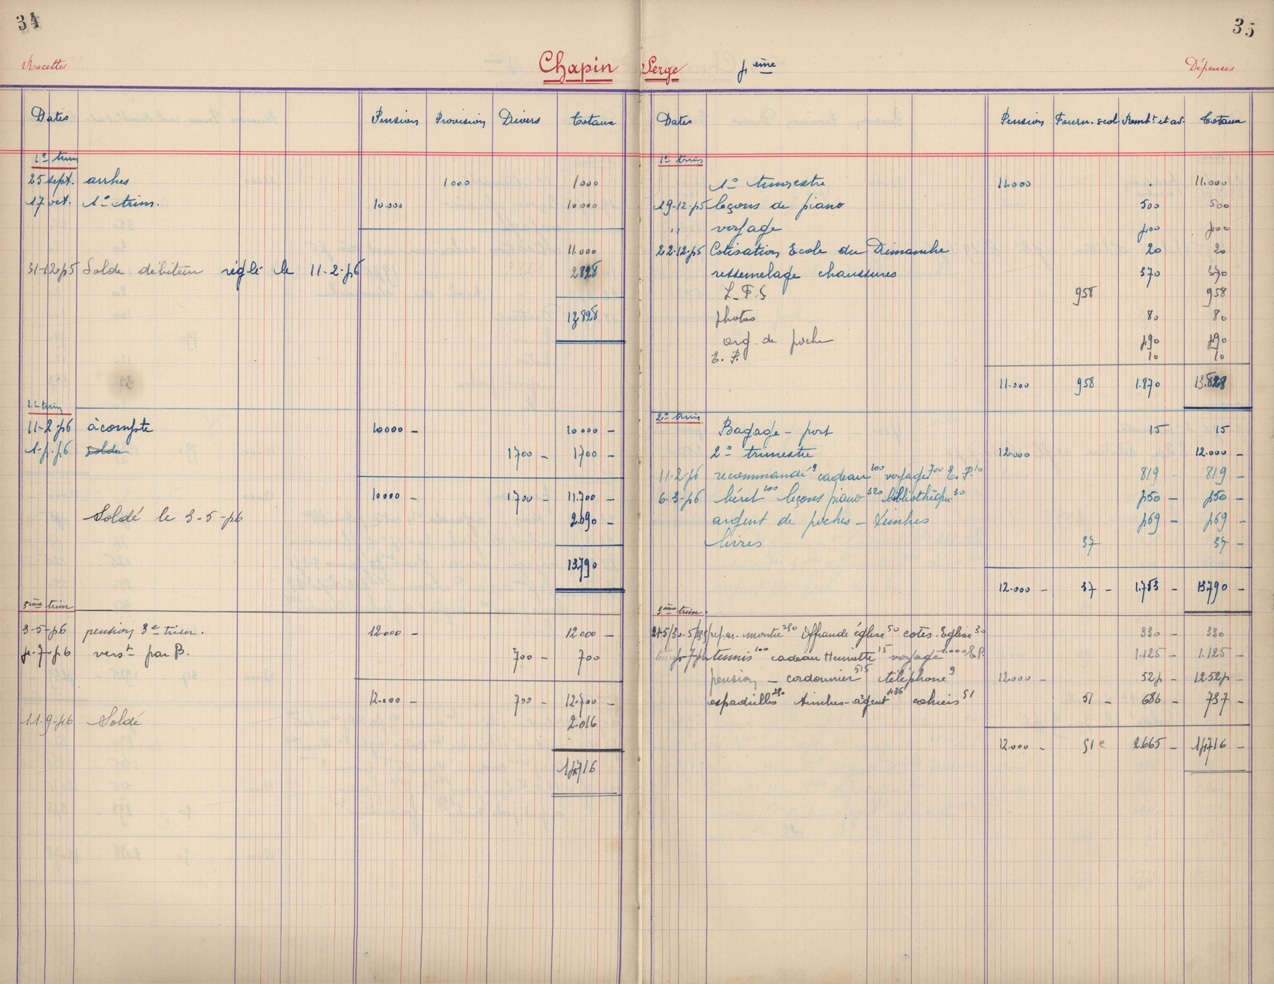 34
Recettes
Chapin
Dates Pension Provision Divers Totaux
1er trim
25 sept. arrhes 1000 1000
17 oct. 1er trim. 10.000 10.000
11.000
31-12-45 Solde débiteur réglé le 11-2-46 2828
13.828
2e trim
11-2-46 àcompte 10000 - 10000 -
1-4-46 solde 1700 - 1700 -
10000 - 1700 - 11.700 -
Soldé le 3-5-46 2.090 -
13790
3ème trim
3-5-46 pension 3e trim. 12.000 - 12000 -
4-7-46 verst par B. 700 - 700
12.000 - 700 - 12.700 -
11-9-46 Soldé 2.016
14716
35
Serge 4ème
Dépenses
Dates Pension Fourn. scol Rembt et av. Totaux
1er trim
1er trimestre 11.000 11.000
19-12-45 leçons de piano 500 500
" voyage 400 400
22-12-45 Cotisation Ecole du Dimanche 20 20
ressemelage chaussures 370 370
L.F.S 958 958
photos 80 80
arg. de poche 490 490
E.P. 10 10
11.000 958 1.870 13.828
2e trim
Bagage - port 15 15
2e trimestre 12.000 12.000 -
11-2-46 recommandé 9 cadeau 100 voyage 700 E.P. 10 819 - 819 -
6-3-46 béret 100 leçons piano 320 bibliothèque 30 450 - 450 -
argent de poches - timbres 469 - 469 -
livres 37 37 -
12.000 - 37 - 1.753 - 13790 -
3ème trim.
répar. montre 250 offrande église 50 cotis. Eglise 30 330 - 330
4-7-46 tennis 100 cadeau Henriette 15 voyage 1.000 E.P. 1.125 - 1.125 -
pension - cordonnier 515 téléphone 9 12.000 - 524 - 12.524 -
espadrilles 250 timbres-argent 436 cahiers 51 51 - 686 - 737 -
12.000 - 51 2665 - 14716 -